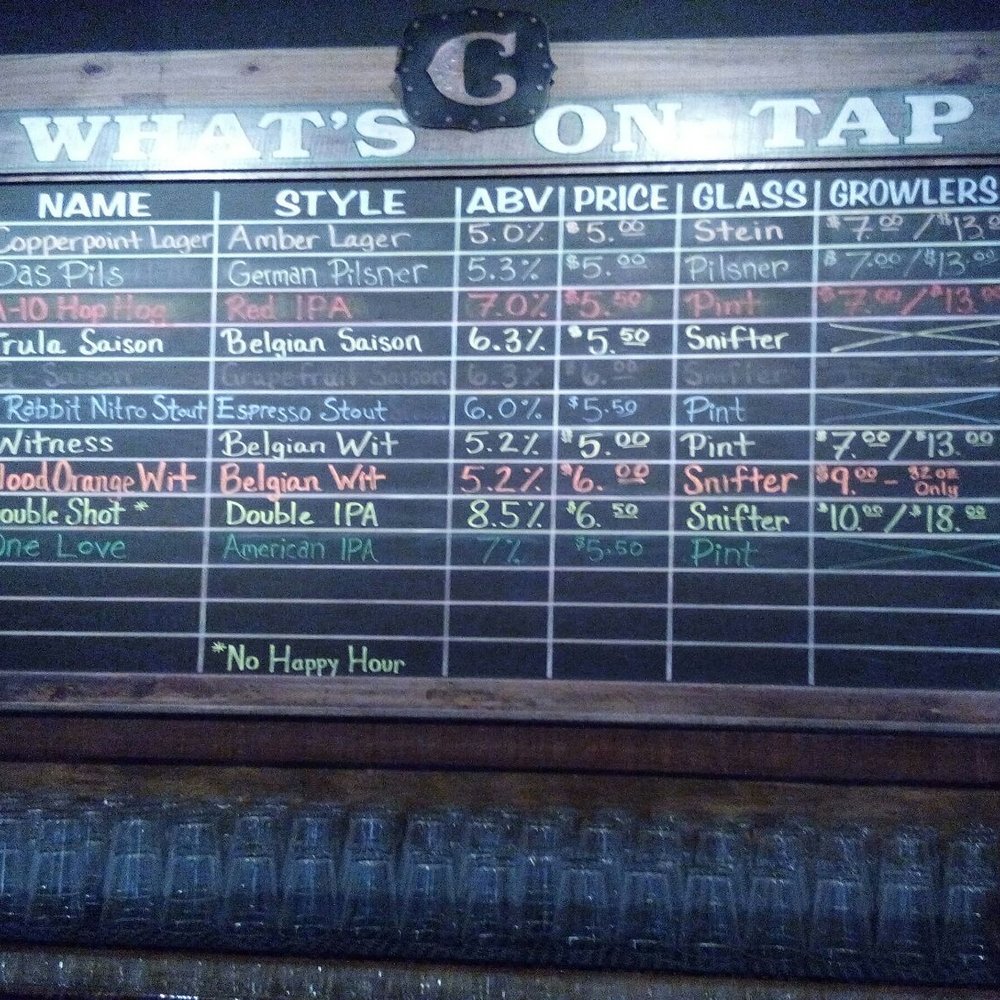 C
WHAT'S ON TAP
NAME STYLE ABV PRICE GLASS GROWLERS
Copperpoint Lager Amber Lager 5.0% $5.00 Stein $7.00/$13.0
Das Pils German Pilsner 5.3% $5.00 Pilsner $7.00/$13.00
A-10 Hop Hog Red IPA 7.0% $5.50 Pint $7.00/$13.00
Trula Saison Belgian Saison 6.3% $5.50 Snifter
Saison Grapefruit Saison 6.3% $6.00 Snifter
Rabbit Nitro Stout Espresso Stout 6.0% $5.50 Pint
Witness Belgian Wit 5.2% $5.00 Pint $7.00/$13.00
lood Orange Wit Belgian Wit 5.2% $6.00 Snifter $9.00 - 32 oz Only
ouble Shot * Double IPA 8.5% $6.50 Snifter $10.00/$18.00
One Love American IPA 7% $5.50 Pint
*No Happy Hour